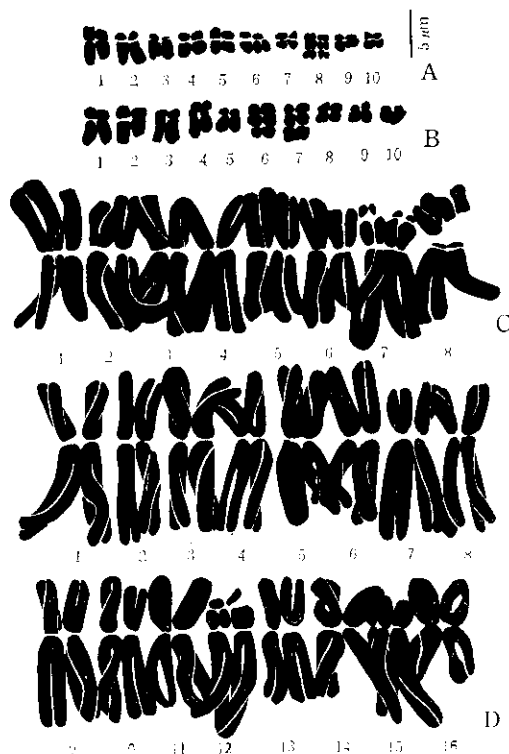 5 μm
1 2 3 4 5 6 7 8 9 10
A
1 2 3 4 5 6 7 8 9 10
B
C
1 2 3 4 5 6 7 8
1 2 3 4 5 6 7 8
D
11 12 13 14 15 16